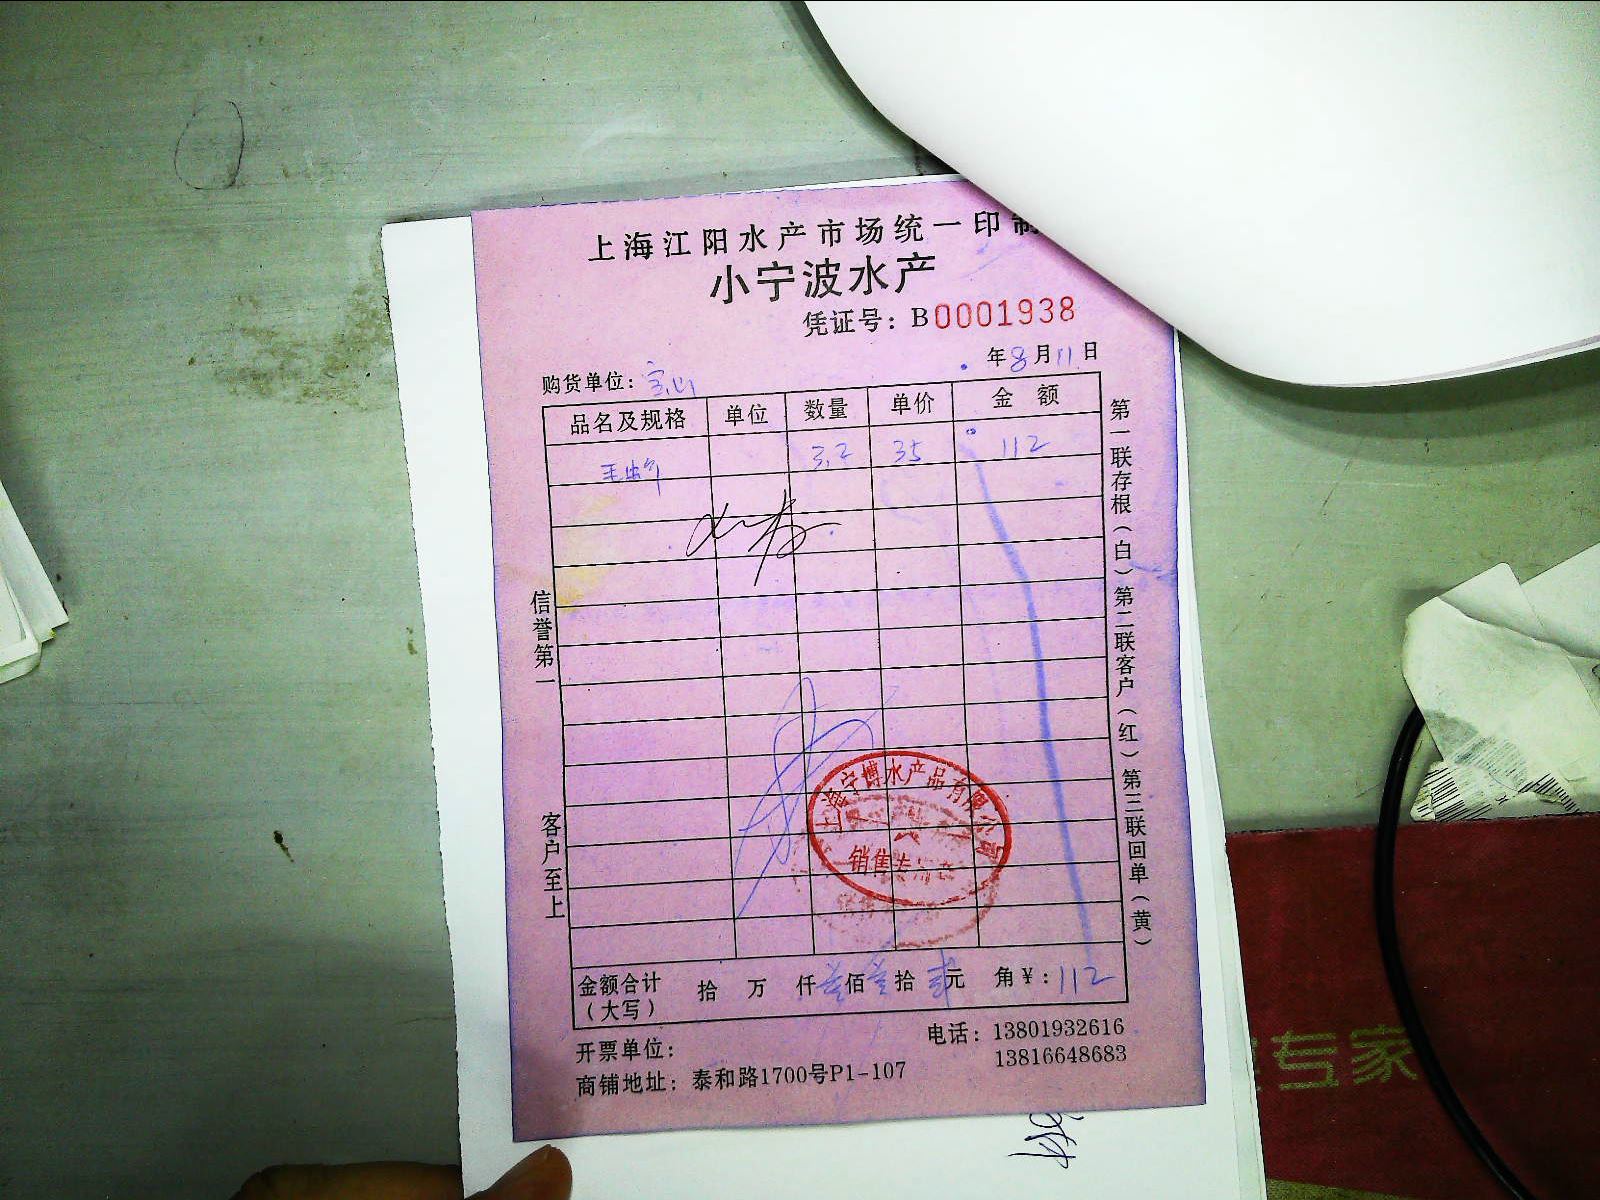 上海江阳水产市场统一印制
小宁波水产
凭证号：B0001938
年8月11日
购货单位：宝山
品名及规格 单位 数量 单价 金额
3.2 35 112
信誉第一
客户至上
第一联存根（白）第二联客户（红）第三联回单（黄）
上海宁博水产品有限公司
销售专用章
金额合计（大写） 拾 万 仟壹佰壹拾贰元 角￥：112
开票单位： 电话：13801932616
13816648683
商铺地址：泰和路1700号P1-107
专家